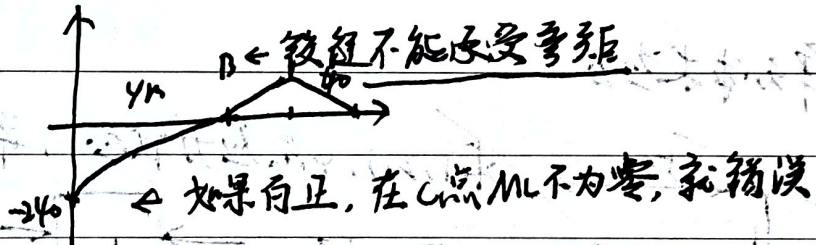 B ← 铰链不能承受弯矩
4m
40
-240
← 如果向正, 在C点M不为零, 就错误